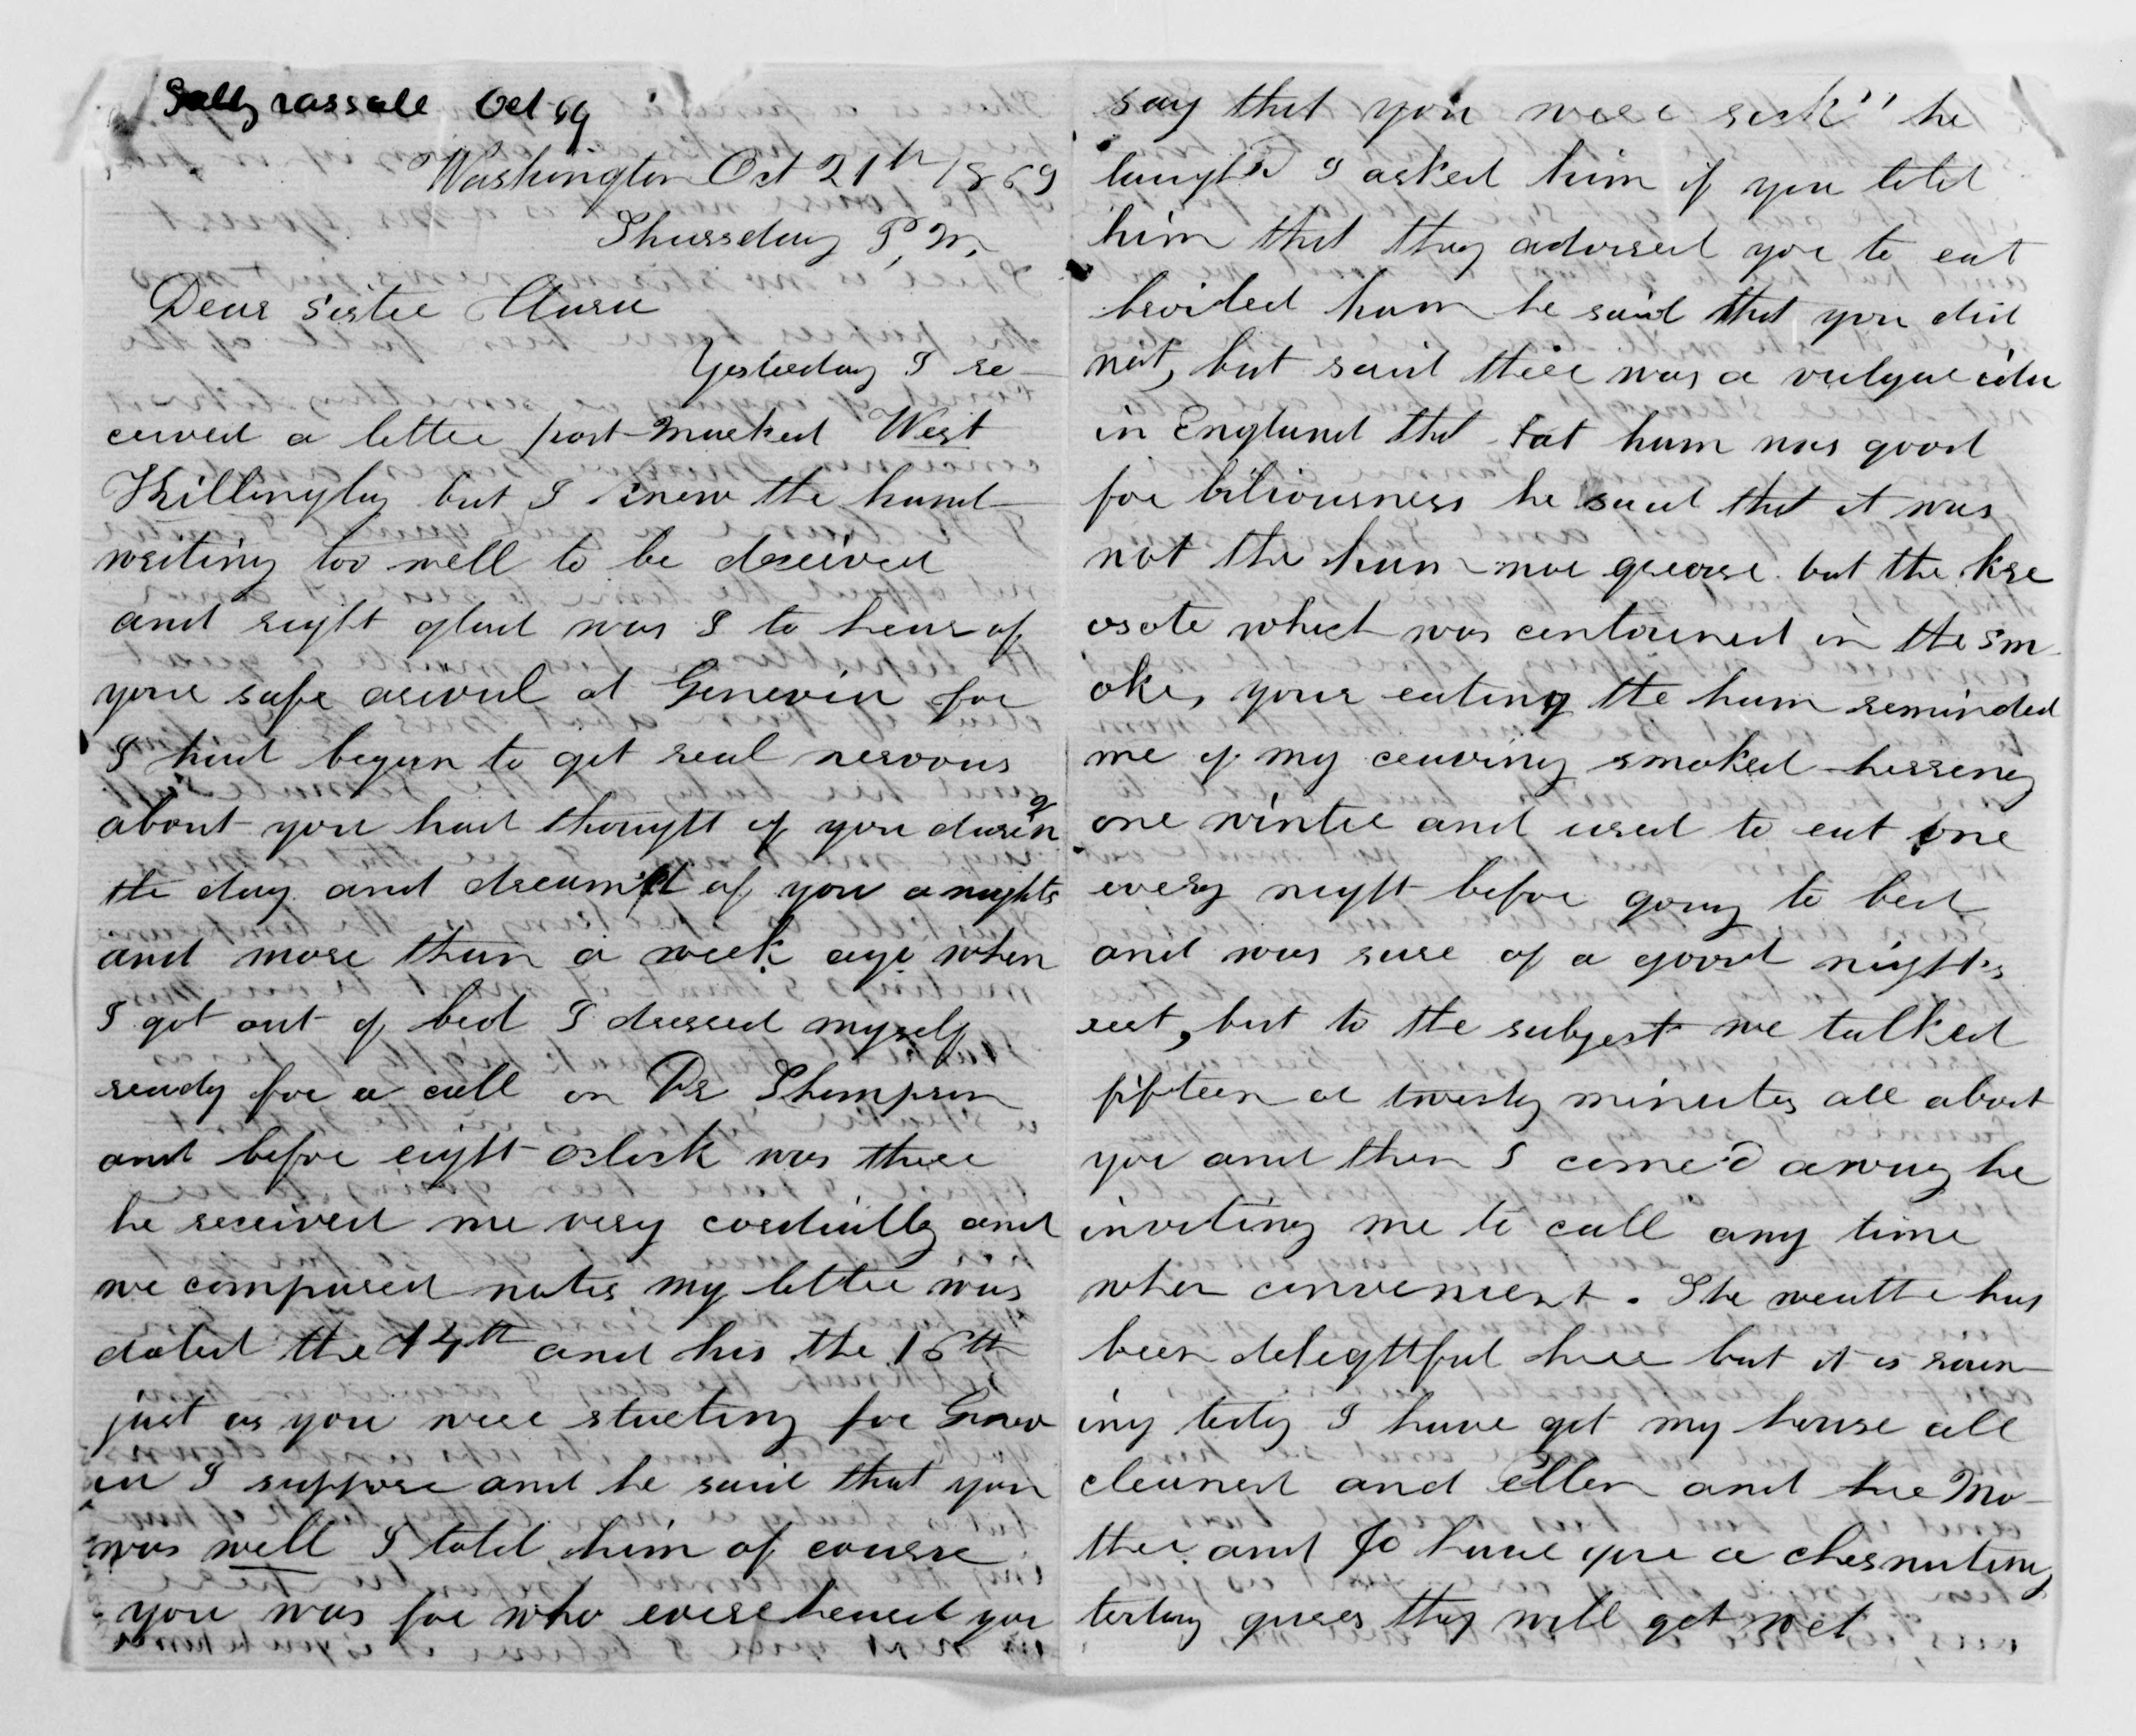 Sally Vassall Oct 69
Washington Oct 21th 1869
Thursday P.M.
Dear Sister Clara
Yesterday I re-
ceived a letter post-marked West
Killingley but I knew the hand-
writing too well to be deceived
and right glad was I to hear of
your safe arival at Genevia for
I had begun to get real nervous
about you had thought of you during
the day and dream'd of you a nights
and more than a week ago when
I got out of bed I dressed myself
ready for a call on Dr Thompson
and before eight Oclock was there
he received me very cordially and
we compared notes my letter was
dated the 14th and his the 16th
just as you were starting for Genev
ia I suppose and he said that you
was well I told him of course
you was for who ever heard you
say that you were sick" he
laugh'd I asked him if you told
him that they advised you to eat
broiled ham he said that you did
not, but said there was a vulgar idea
in England that fat ham was good
for biliousness he said that it was
not the ham nor grease but the kre
osote which was contained in the sm-
oke, your eating the ham reminded
me of my craving smoked herring
one winter and used to eat one
every night before going to bed
and was sure of a good night's
rest, but to the subject we talked
fifteen or twenty minutes all about
you and then I come'd away he
inviting me to call any time
when convenient. The weather has
been delightful here but it is rain-
ing today I have got my house all
cleaned and Ellen and her Mo-
ther and Jo have gone a chesnuting
today guess they will get wet